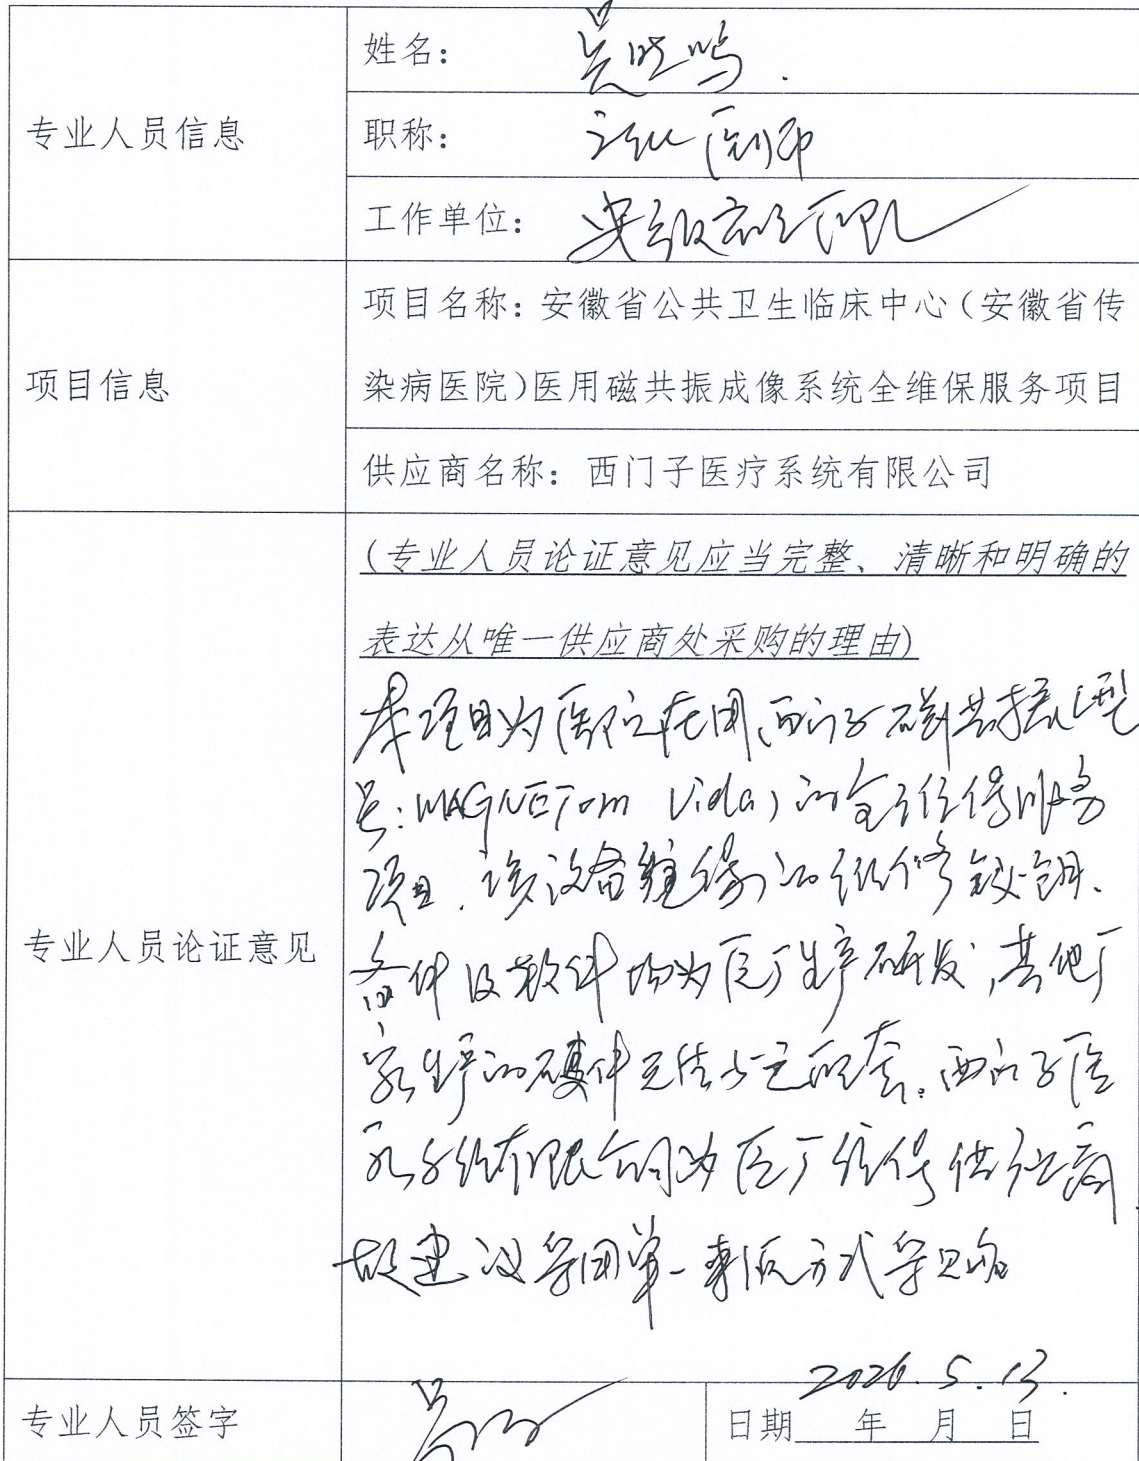 专业人员信息
姓名: 吴晓鸣.
职称: 主任医师
工作单位:
项目信息
项目名称: 安徽省公共卫生临床中心(安徽省传
染病医院)医用磁共振成像系统全维保服务项目
供应商名称: 西门子医疗系统有限公司
专业人员论证意见
(专业人员论证意见应当完整、清晰和明确的
表达从唯一供应商处采购的理由)
本项目为医院在用西门子磁共振(型
号:MAGNETom Vida)的全维保服务
项目.该设备维保的维修密钥、
备件及软件均为原厂生产研发,其他厂
家生产的硬件无法与之配套。西门子医
疗系统有限公司为原厂维保供应商
故建议采用单一来源方式采购
2026.5.13.
专业人员签字
日期 年 月 日